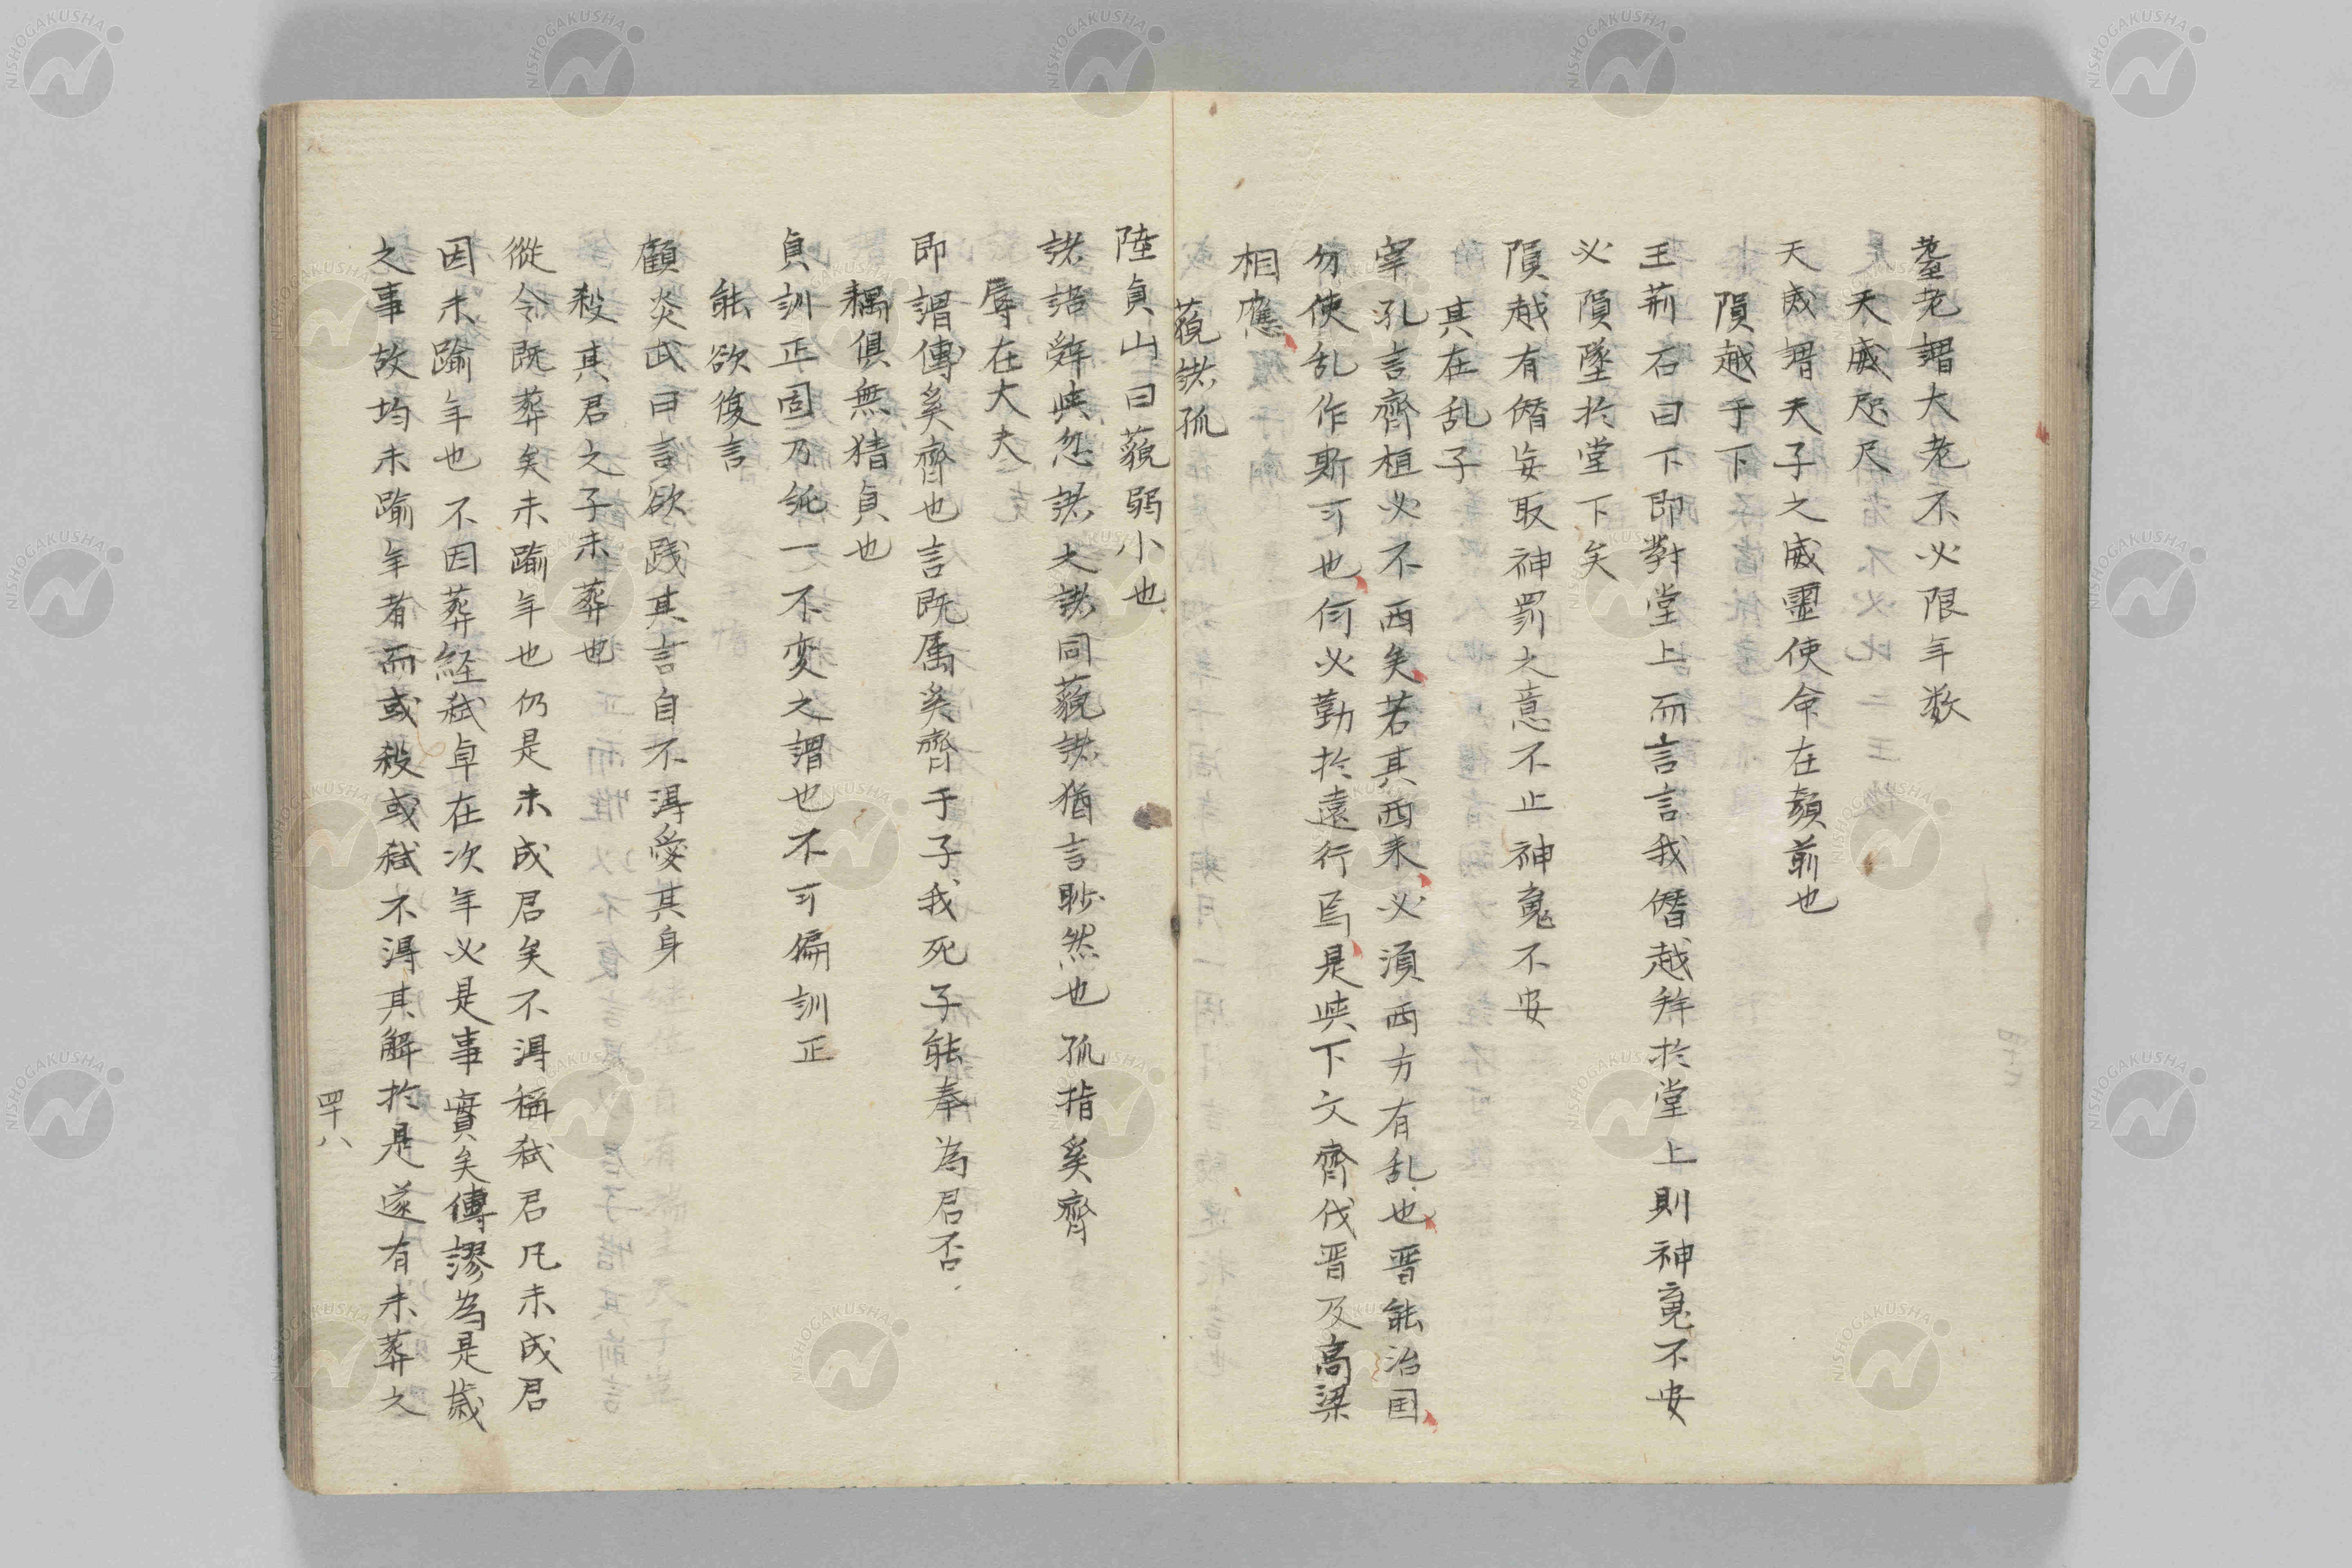 耋老謂大老不必限年数
天威咫尺
天威謂天子之威靈使命在顔前也
隕越于下
王荊石曰下即對堂上而言言我僭越拜於堂上則神䰟不安
必隕墜於堂下矣
隕越有僭妄取神罰之意不止神䰟不安
其在乱乎
宰孔言齊桓必不西矣若其西来必須西方有乱也晋能治国
勿使乱作斯可也何必勤於遠行焉是與下文齊伐晋及高梁
相應
藐諸孤
陸貞山曰藐弱小也
諸語辞與忽諸之諸同藐諸猶言眇然也孤指奚齊
辱在大夫
即謂傳奚齊也言既属奚齊于子我死子能奉為君否
耦俱無猜貞也
貞訓正固乃純一不変之謂也不可偏訓正
能欲復言
顧炎武曰言欲践其言自不淂愛其身
殺其君之子未葬也
從令既葬矣未踰年也仍是未成君矣不淂稱弑君凡未成君
因未踰年也不因葬経弑卓在次年必是事實矣傳謬為是歳
之事故均未踰年者而或殺或弑不淂其解於是遂有未葬之
四十八
NISHOGAKUSHA